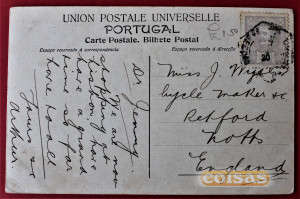 UNION POSTALE UNIVERSELLE
PORTUGAL
Carte Postale. Bilhete Postal
Espaço reservado á correspondencia
Espaço reservado á direcção
Dr Jenny.
We are now
stopping at
Lisbon, have
have a grand
time so far
hope to all
Yours
Arthur.
1.50
Miss J.
Cycle maker &c
Retford
Notts
England
coisas